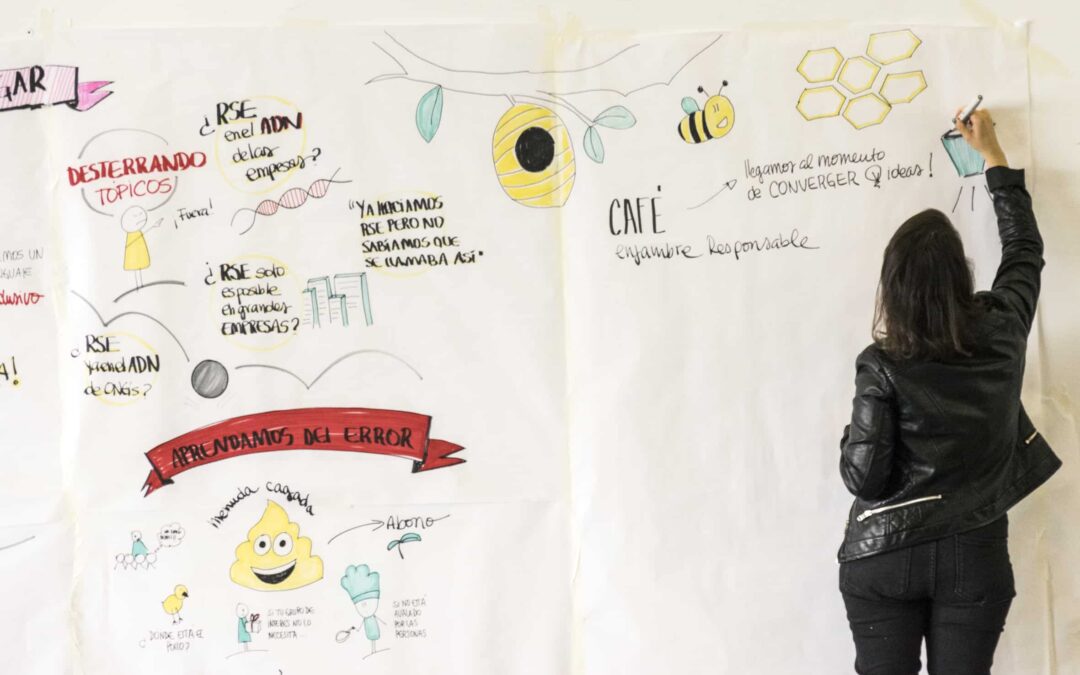 AR
DESTERRANDO
TÓPICOS
¡Fuera!
¿RSE
en el ADN
de las
empresas?
"YA HACÍAMOS
RSE PERO NO
SABÍAMOS QUE
SE LLAMABA ASÍ"
¿RSE solo
es posible
en grandes
EMPRESAS?
EMOS UN
¿RSE
ya en el ADN
de ONGs?
A!
APRENDAMOS DEL ERROR
Menuda cagada
Abono
¿DÓNDE ESTÁ EL
POLLO?
SI TU GRUPO DE
INTERÉS NO LO
NECESITA...
SI NO ESTÁ
AVALADO
POR LAS
PERSONAS
CAFÉ
enjambre Responsable
llegamos al momento
de CONVERGER ideas!